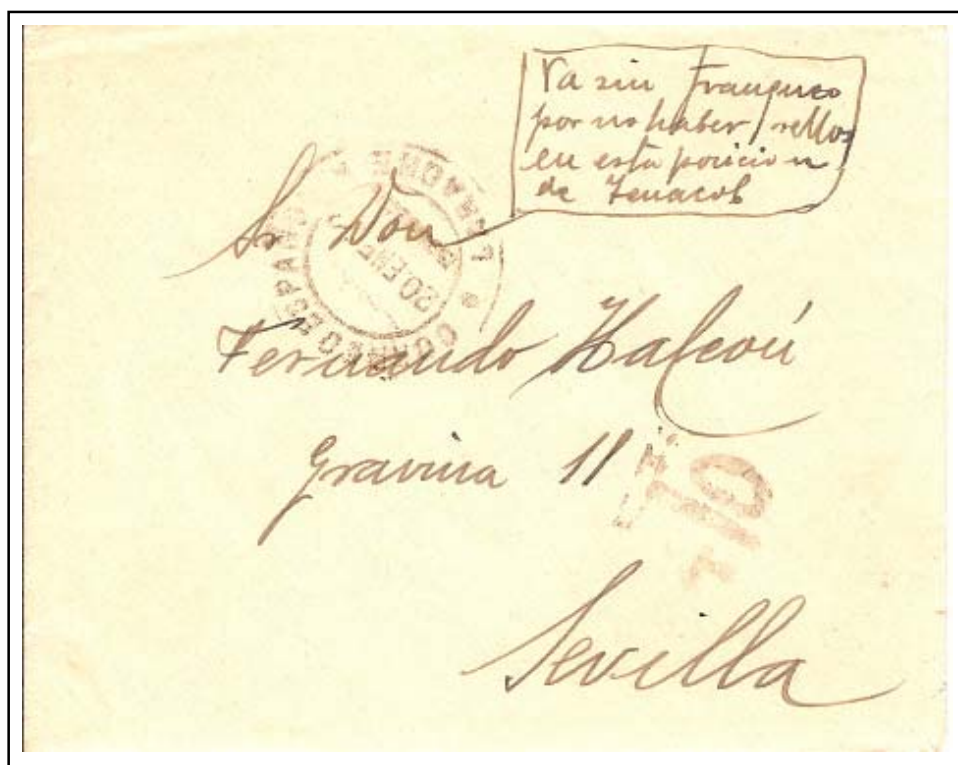 Va sin franqueo
por no haber sellos
en esta posicion
de Tenacob
Sr Don
CORREO ESPAÑOL LARACHE
20 ENE
Fernando Halcón
Gravina 11
Sevilla